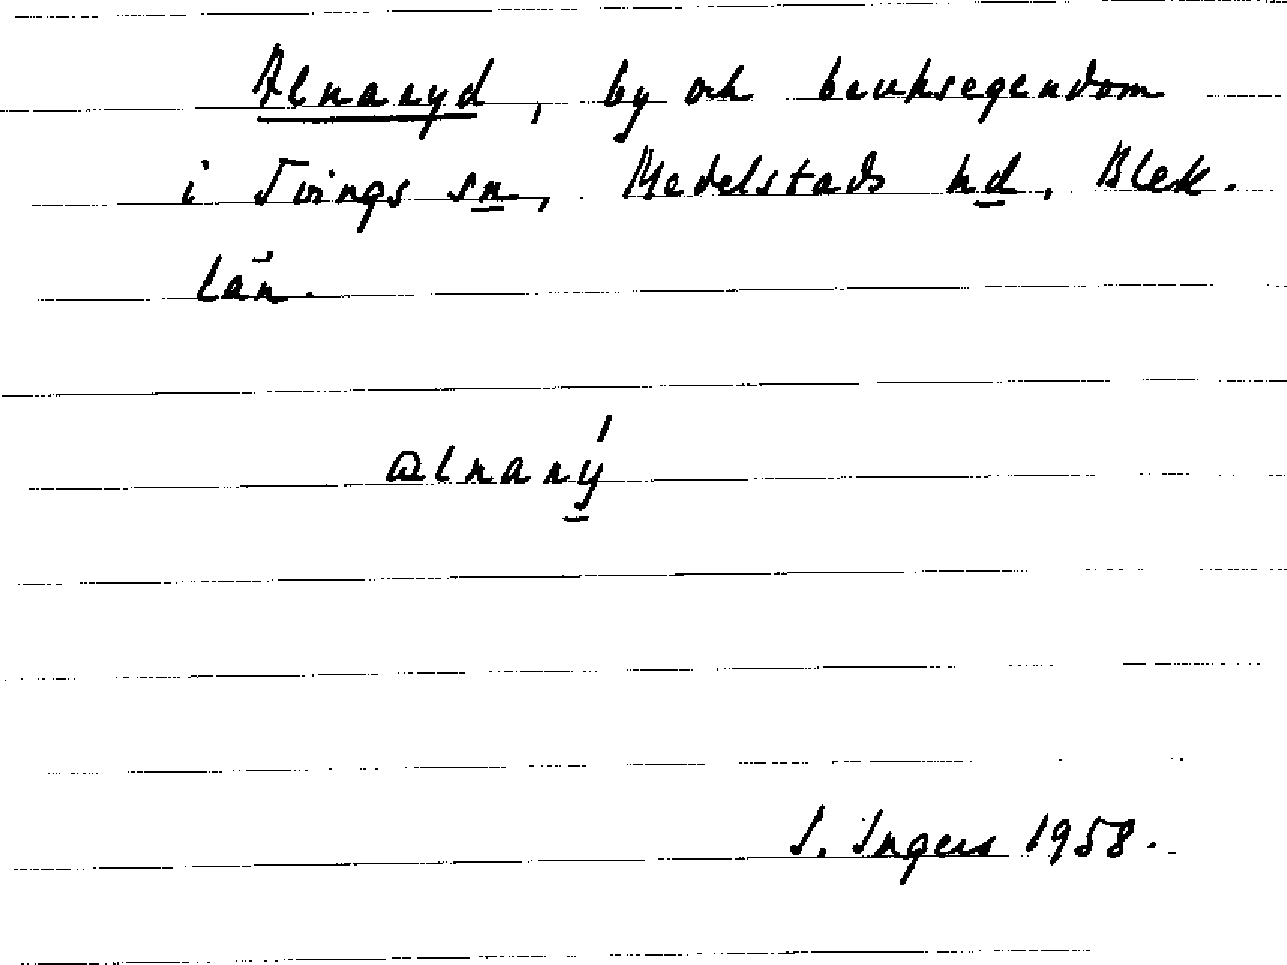 Alnaryd, by och bruksegendom
i Tvings sn, Medelstads hd, Blek.
län.
alnarý
I. Ingers 1958.